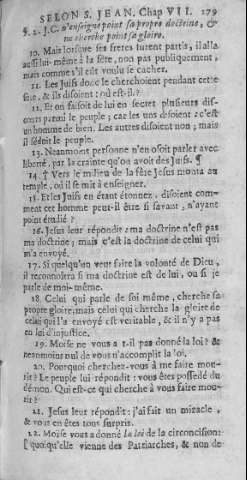 SELON S. JEAN. Chap VII. 179
§. 2. J.C. n'enseigne point sa propre doctrine, &
ne cherche point sa gloire.
10. Mais lorsque ses freres furent partis, il alla
aussi lui-même à la fête, non pas publiquement,
mais comme s'il eût voulu se cacher.
11. Les Juifs donc le cherchoient pendant cette
fête, & ils disoient: où est-il?
12. Et on faisoit de lui en secret plusieurs dis-
cours parmi le peuple; car les uns disoient c'est
un homme de bien. Les autres disoient non; mais
il séduit le peuple.
13. Neanmoins personne n'en osoit parler avec
liberté, par la crainte qu'on avoit des Juifs. ¶
14. † Vers le milieu de la fête Jesus monta au
temple, où il se mit à enseigner.
15. Et les Juifs en étant étonnez, disoient com-
ment cet homme peut-il être si savant, n'ayant
point étudié?
16. Jesus leur répondit: ma doctrine n'est pas
ma doctrine; mais c'est la doctrine de celui qui
m'a envoyé.
17. Si quelqu'un veut faire la volonté de Dieu,
il reconnoîtra si ma doctrine est de lui, ou si je
parle de moi-même.
18. Celui qui parle de soi même, cherche sa
propre gloire, mais celui qui cherche la gloire de
celui qui l'a envoyé est veritable, & il n'y a pas
en lui d'injustice.
19. Moïse ne vous a t-il pas donné la loi? &
neanmoins nul de vous n'accomplit la loi.
20. Pourquoi cherchez-vous à me faire mou-
rir? Le peuple lui répondit: vous êtes possedé du
démon. Qui est-ce qui cherche à vous faire mou-
rir?
21. Jesus leur répondit: j'ai fait un miracle,
& vous en êtes tous surpris.
22. Moïse vous a donné la loi de la circoncision:
(quoiqu'elle vienne des Patriarches, & non de